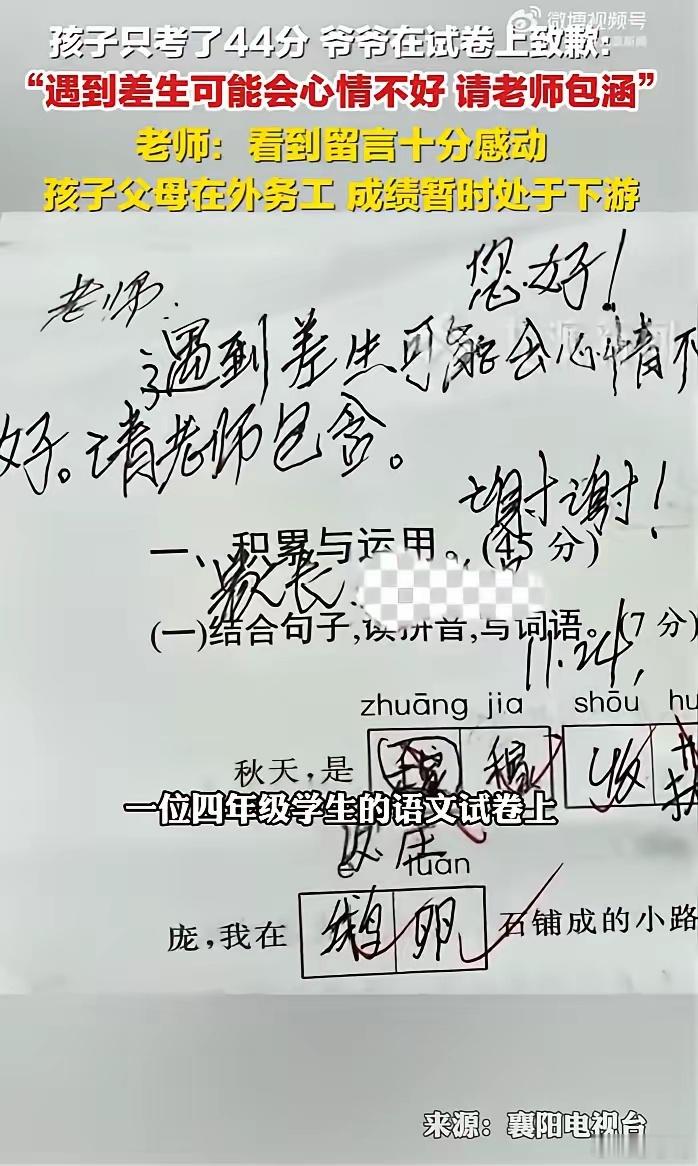 微博视频号
孩子只考了44分 爷爷在试卷上致歉：
“遇到差生可能会心情不好 请老师包涵”
老师：看到留言十分感动
孩子父母在外务工 成绩暂时处于下游
老师：
您好！
遇到差生可能会心情不
好。请老师包含。
谢谢！
一、积累与运用。(45分)
家长
(一)结合句子,读拼音,写词语。(7分)
11.24,
zhuāng jia shōu hu
秋天,是 稼 收
一位四年级学生的语文试卷上
庄
é luǎn
庞,我在 鹅 卵 石铺成的小路
来源：襄阳电视台